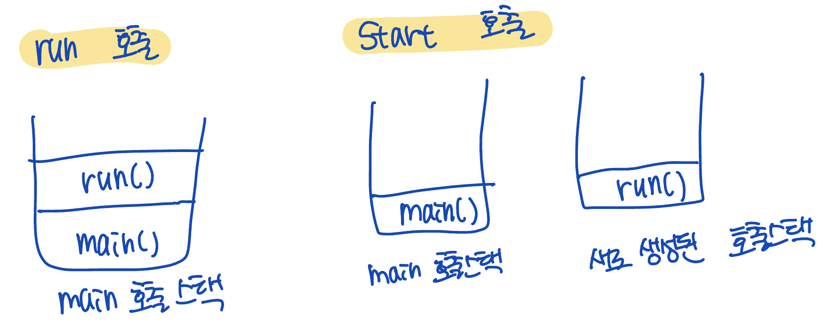 run 호출
run()
main()
main 호출 스택
Start 호출
main()
main 호출스택
run()
새로 생성된 호출스택